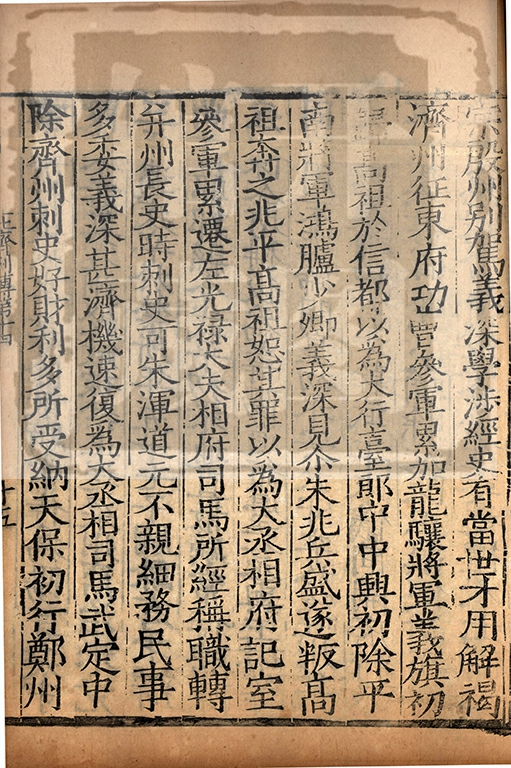 宗殷州別駕義深學涉經史有當世才用解褐
濟州征東府功曹參軍累加龍驤將軍義旗初
歸高祖於信都以為大行臺郎中中興初除平
南將軍鴻臚少卿義深見尒朱兆兵盛遂叛高
祖奔之兆平高祖恕其罪以為大丞相府記室
參軍累遷左光祿大夫相府司馬所經稱職轉
并州長史時刺史可朱渾道元不親細務民事
多委義深甚濟機速復為大丞相司馬武定中
除齊州刺史好財利多所受納天保初行鄭州
北齊列傳第十四
十五